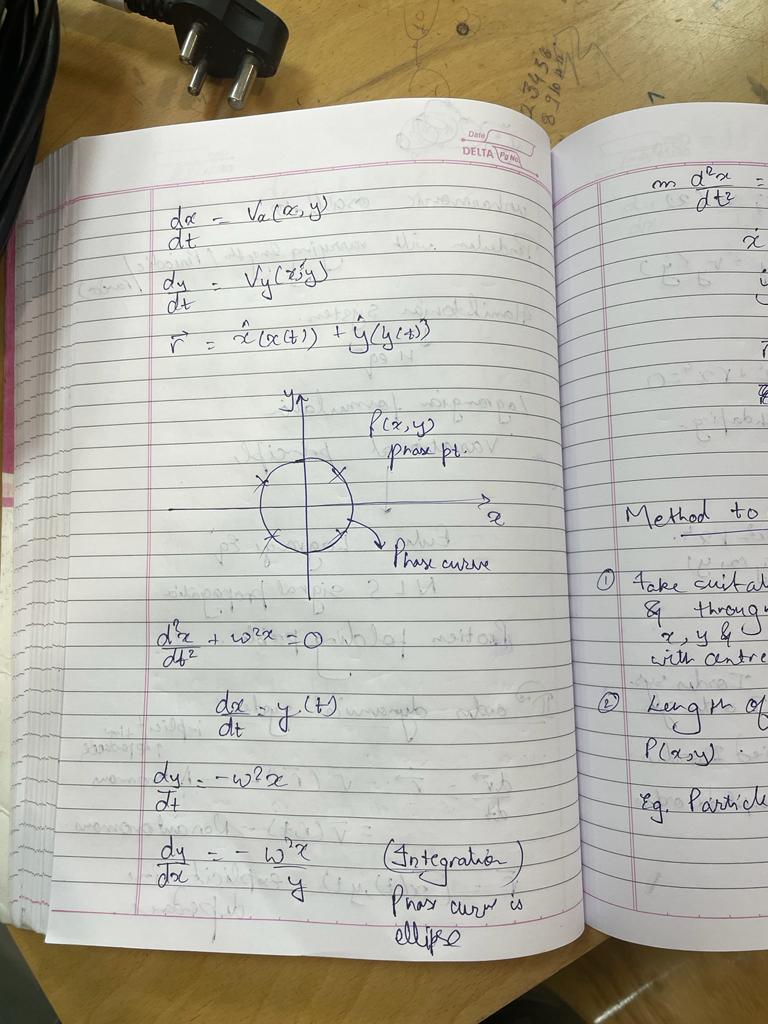 Date
DELTA Pg No.
dx/dt = Vx(x, y)
dy/dt = Vy(x, y)
r⃗ = x̂(x(t)) + ŷ(y(t))
y
P(x, y)
phase pt.
x
Phase curve
d²x/dt² + ω²x = 0
dx/dt = y(t)
dy/dt = -ω²x
dy/dx = - ω²x/y
(Integration)
Phase curve is
ellipse
m d²x/dt² =
ẋ
Method to
① Take suital
& through
x, y &
with centre
② Length of
P(x,y)
Eg. Particle